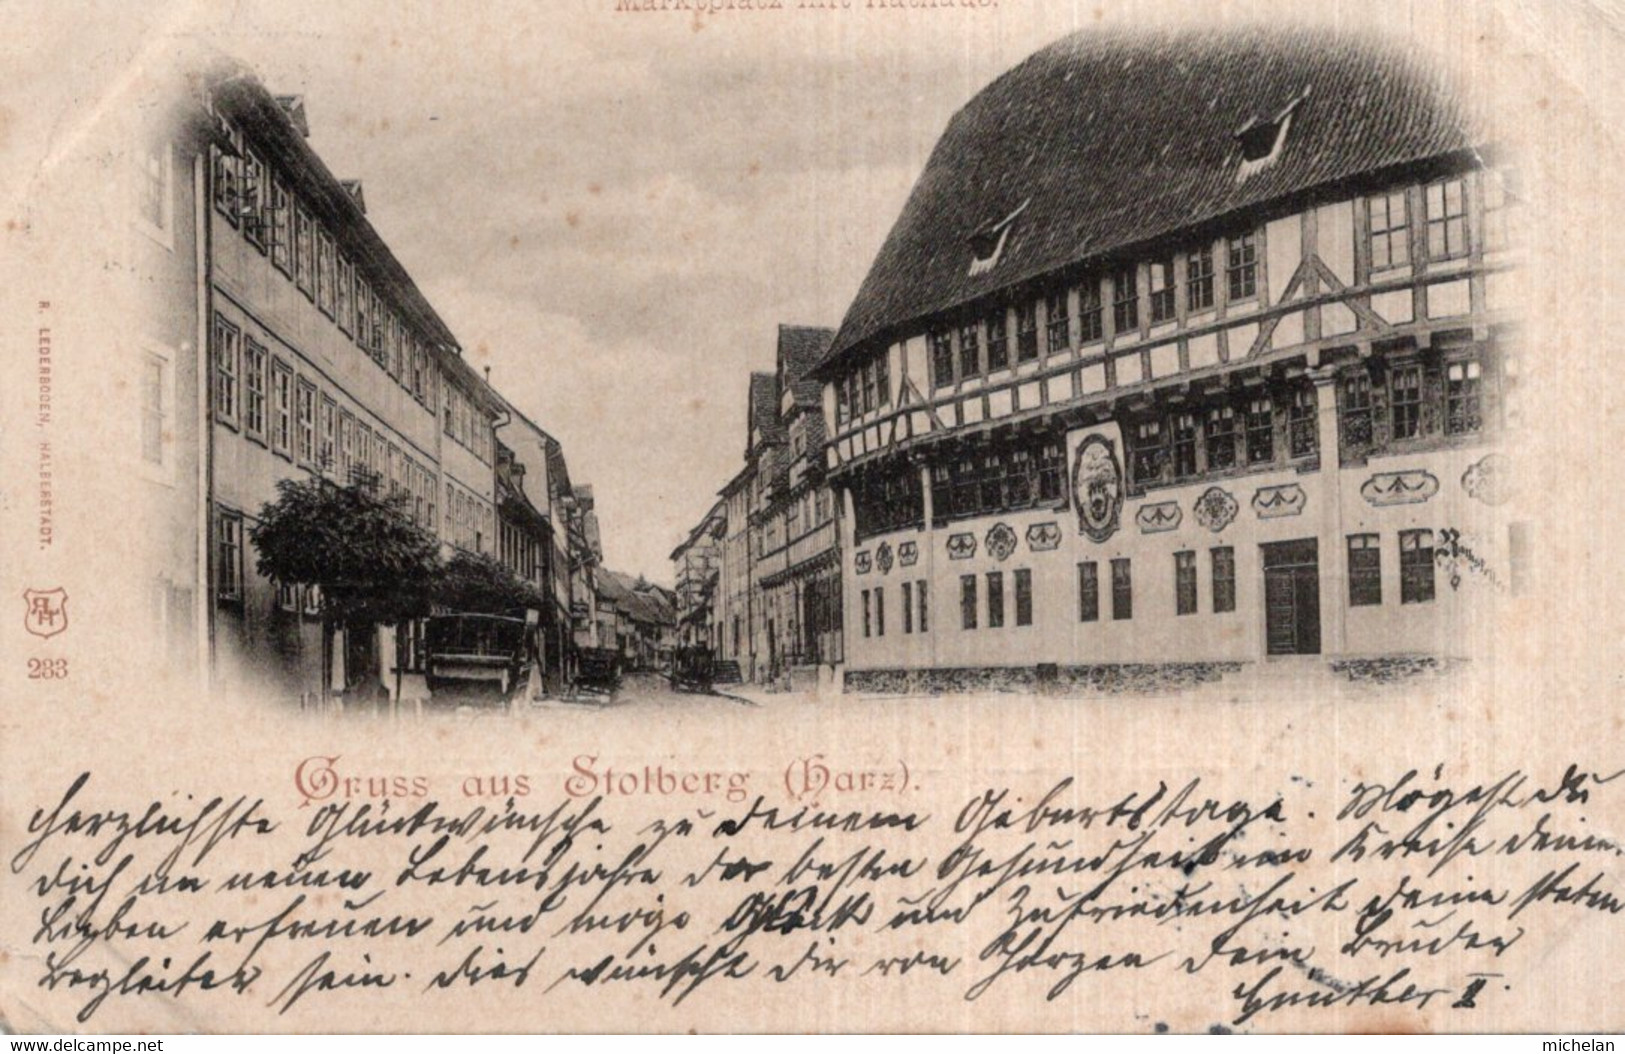 Marktplatz mit Rathaus.
R. LEDERBOGEN, HALBERSTADT.
RLH
283
Rathskeller
Gruss aus Stolberg (Harz).
Herzlichste Glückwünsche zu deinem Geburtstage. Mögest du
dich im neuen Lebensjahre der besten Gesundheit im Kreise deiner
Lieben erfreuen und möge Glück und Zufriedenheit deine steten
Begleiter sein. Dies wünscht dir von Herzen dein Bruder
Günther II.
www.delcampe.net
michelan